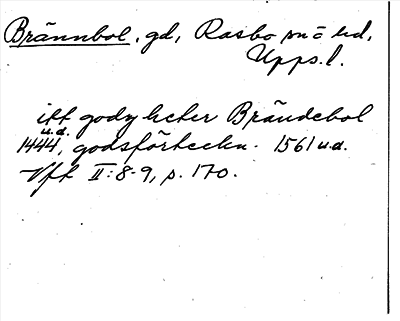 Brännbol, gd, Rasbo sn o hd,
Upps. l.
itt godz heter Brändebol
u.d.
1444, godsförteckn. 1561 u.d.
Vft II: 8-9, s. 170.